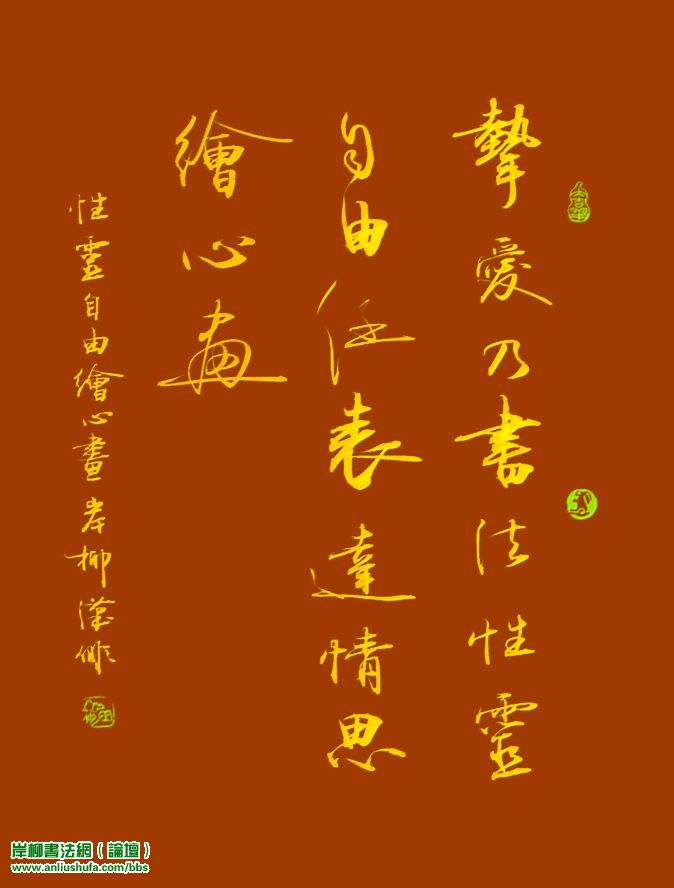 摯愛乃書法性靈
自由任表達情思
繪心畫
性靈自由繪心畫岸柳漢
岸柳書法網（論壇）
www.anliushufa.com/bbs